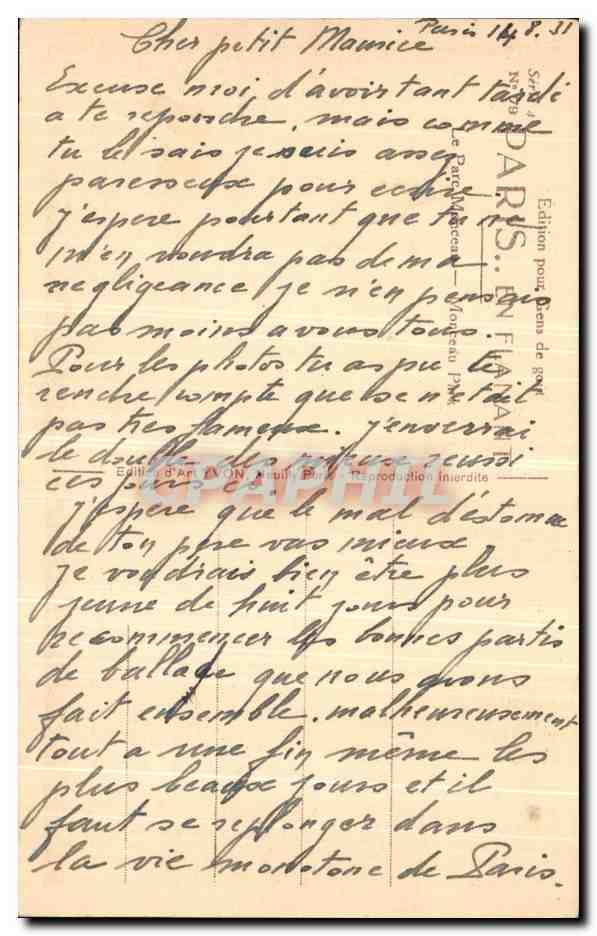 Paris 14 8.31
Cher petit Maurice
Excuse moi d'avoir tant tardé
a te reponche, mais comme
tu le sais je suis assez
paresseux pour ecrire
j'espere pourtant que tu ne
m'en voudra pas de ma
negligeance je n'en pensais
pas moins a vous tous.
Pour les photos tu as pu te
rendre compte que se n'etait
pas tres fameux. j'enverrai
le double des mieux reussi
ces jours ci.
j'espere que le mal d'estomac
de ton pere vas mieux
je voudrais bien être plus
jeune de huit jours pour
recommencer les bonnes partis
de ballade que nous avons
fait ensemble. malheureusement
tout a une fin même les
plus beaux jours et il
faut se replonger dans
la vie monotone de Paris.
Edition pour Gens de goût
PARIS.. EN FLANANT
Le Parc Monceau — Monceau Park
Edition d'Art YVON, Neuilly Paris - Reproduction Interdite
CPAPHIL